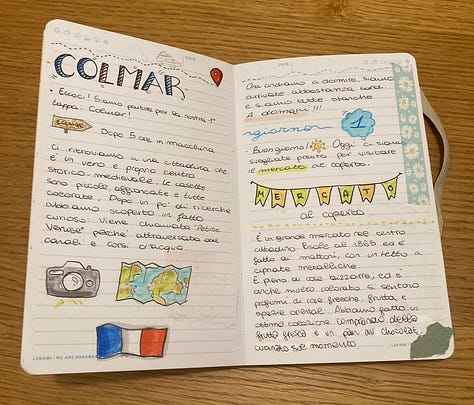 COLMAR
• Eccoci! Siamo partite per la nostra 1°
tappa: Colmar!
COLMAR
Dopo 5 ore in macchina
ci ritroviamo in una cittadina che
è un vero e proprio centro
storico-medievale. le casette
sono piccole, affiancate e tutte
colorate. Dopo un po' di ricerche
abbiamo scoperto un fatto
curioso: viene chiamata "Petite
Venise" perché attraversata da
canali e corsi d'acqua.
LEGAMI | WE ARE DREAMERS
DATE
Ora andiamo a dormire, siamo
arrivate abbastanza tardi
e siamo tutte stanche.
A domani!!!
giorno 1
• Buongiorno! Oggi ci siamo
svegliate presto per visitare
il mercato al coperto.
MERCATO
al coperto
È un grande mercato nel centro
cittadino. Risale al 1865 ed è
fatto di mattoni, con un tetto a
capriate metalliche.
È pieno di cose pazzesche, ed è
anche molto colorato. Si sentono
profumi di cose fresche, frutta, e
spezie orientali. Abbiamo fatto un'
ottima colazione comprando della
frutta fresca e un pain au chocolat,
cucinato sul momento.
LEGAMI